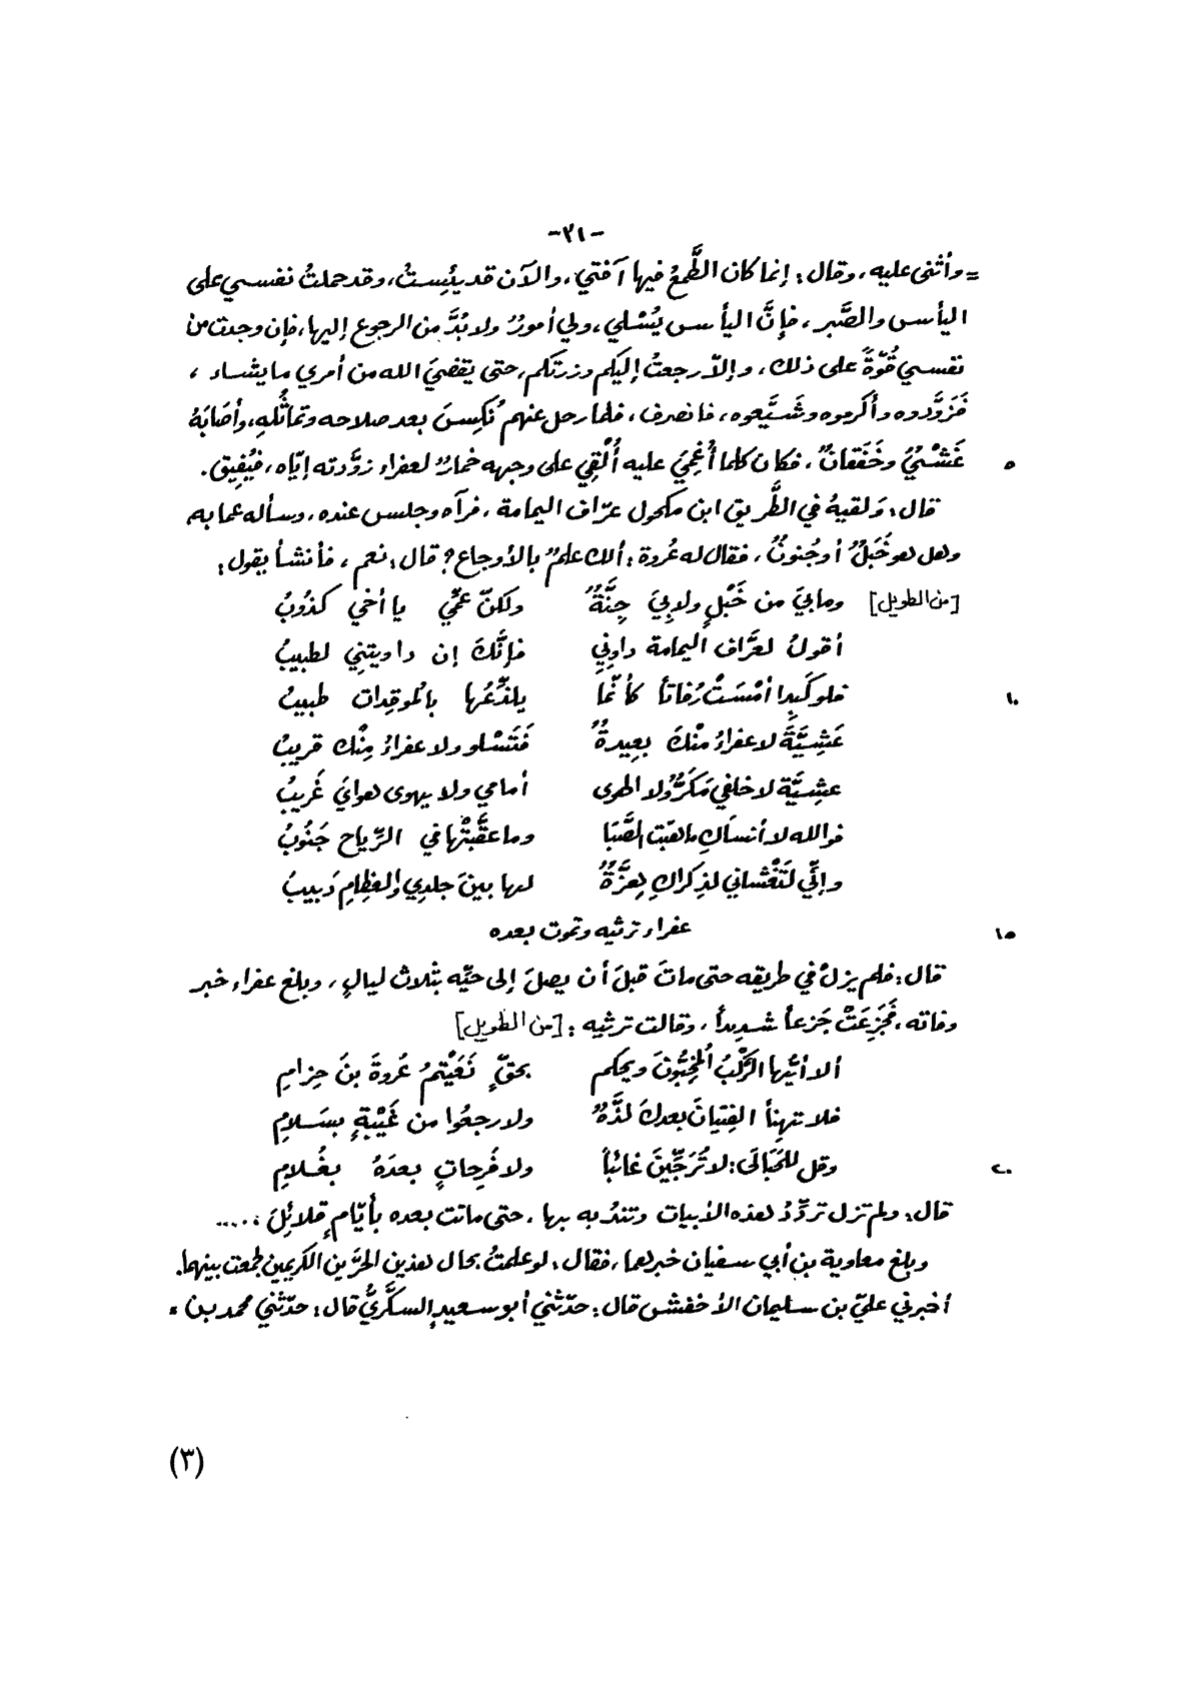 -٣١-
= وأثنى عليه، وقال: إنما كان الطَّمعُ فيها آفتي، والآن قد يئِستُ، وقد حملتُ نفسي على
اليأس والصَّبر، فإنَّ اليأس يُسْلي، ولي أمورٌ ولا بُدَّ من الرجوع إليها، فإن وجدت من
نفسي قُوّةً على ذلك، وإلّا رجعتُ إليكم وزرتكم، حتى يقضيَ الله من أمري ما يشاء،
فَزَوَّدوه وأكرموه وشَيَّعوه، فانصرف، فلما رحل عنهم نُكِسَ بعد صلاحه وتماثُلِه، وأصَابَهُ
غَشْيٌ وخَفَقانٌ، فكان كلما أُغمِيَ عليه أُلْقِي على وجهه خمارٌ لعفراء زوَّدته إيّاه، فيُفِيق.
٥
قال: وَلقيهُ في الطَّريق ابن مكحول عرّاف اليمامة، فرآه وجلس عنده، وسأله عما به
وهل هو خَبَلٌ أو جُنونٌ، فقال له عُروة: ألك علمٌ بالأوجاع؟ قال: نعم، فأنشأ يقول:
[من الطويل] وما بيَ من خَبْلٍ ولا بِيَ جِنَّةٌ ولكنّ عَمِّي يا أخي كذُوبُ
أقولُ لعرَّاف اليمامة داوِنِي فإنَّكَ إن داويتني لطبيبُ
فلو كَبِدا أمْسَتْ رُفاتاً كأنّما يلذِّعُها بالموقِدات طبيبُ
١٠
عَشِيَّةَ لا عفراءُ منْكَ بعِيدةٌ فَتَسْلو ولا عفراءُ مِنْك قريبُ
عشِيَّة لا خلفي مَكَرٌّ ولا الهوى أمامي ولا يهوى هوايَ غَريبُ
فوالله لا أنسَاكِ ما هبّت الصَّبَا وما عقَّبتْها في الرِّياح جَنُوبُ
وإنِّي لَتَغْشاني لذِكراكِ هِزَّةٌ لها بينَ جلدِي والعِظامِ دَبيبُ
عفراء ترثيه وتموت بعده
١٥
قال: فلم يزلْ في طريقه حتى ماتَ قبلَ أن يصلَ إلى حيّه بثلاث ليالٍ، وبلغ عفراء خبر
وفاته، فَجَزِعَتْ جَزعاً شديداً، وقالت ترثيه: [من الطويل]
ألا أيُّها الرَّكْبُ المُخِبُّونَ ويحكم بحقٍّ نَعَيْتمُ عُروةَ بنَ حِزامِ
فلا تهنأ الفِتيانَ بعدكَ لذَّةٌ ولا رجعُوا من غَيْبَةٍ بسَلامِ
وقل للحَبَالَى: لا تُرَجِّينَ غائباً ولا فَرِحاتٍ بعدَهُ بغُلامِ
٢٠
قال: ولم تزل تردِّدُ هذه الأبيات وتندُبه بها، حتى ماتت بعده بأيّامٍ قلائِلَ، .....
وبلغ معاوية بن أبي سفيان خبرهما، فقال: لو علمتُ بحال هذين الحرَّين الكريمين لجمعت بينهما.
أخبرني عليّ بن سليمان الأخفش قال: حدّثني أبو سعيدٍ السكَّريُّ قال: حدّثني محمد بن =
(٣)